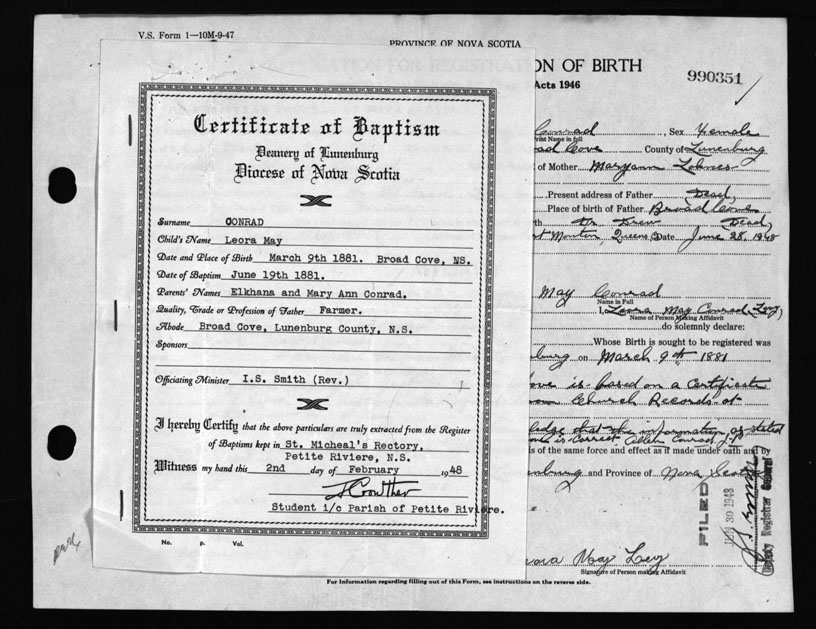 V.S. Form 1—10M-9-47
PROVINCE OF NOVA SCOTIA
ON OF BIRTH
990351
Acts 1946
Certificate of Baptism
Deanery of Lunenburg
Diocese of Nova Scotia
Surname CONRAD
Child's Name Leora May
Date and Place of Birth March 9th 1881. Broad Cove, NS.
Date of Baptism June 19th 1881.
Parents' Names Elkhana and Mary Ann Conrad.
Quality, Trade or Profession of Father Farmer.
Abode Broad Cove, Lunenburg County, N.S.
Sponsors
Officiating Minister I.S. Smith (Rev.)
I hereby Certify that the above particulars are truly extracted from the Register
of Baptisms kept in St. Micheal's Rectory,
Petite Riviere, N.S.
Witness my hand this 2nd day of February 1948
Crowther
Student i/c Parish of Petite Riviere.
No. p. Vol.
Conrad, Sex Female
Print Name in full
ad Cove County of Lunenburg
of Mother Maryann
Present address of Father Dead,
Place of birth of Father Broad Cove
th Dr. Drew Dead,
t Morton Queens Date June 28, 1948
May Conrad
Name in Full
I, Leora May Conrad Levy,
Name of Person Making Affidavit
do solemnly declare:
Whose Birth is sought to be registered was
burg on March 9th, 1881
ove is based on a Certificate
from Church Records of
ledge that the information, as stated
is correct
is of the same force and effect as if made under oath and by
enburg and Province of Nova Scotia
FILED
30 1948
Deputy Registrar General
eora May Levy
Signature of Person making Affidavit
For Information regarding filling out of this Form, see instructions on the reverse side.